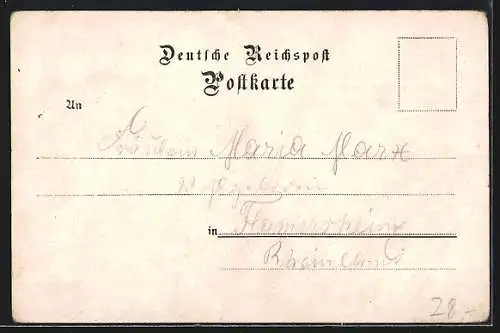 Deutsche Reichspost
Postkarte
An
Fräulein Maria Marx
in
Rheinland
28,-